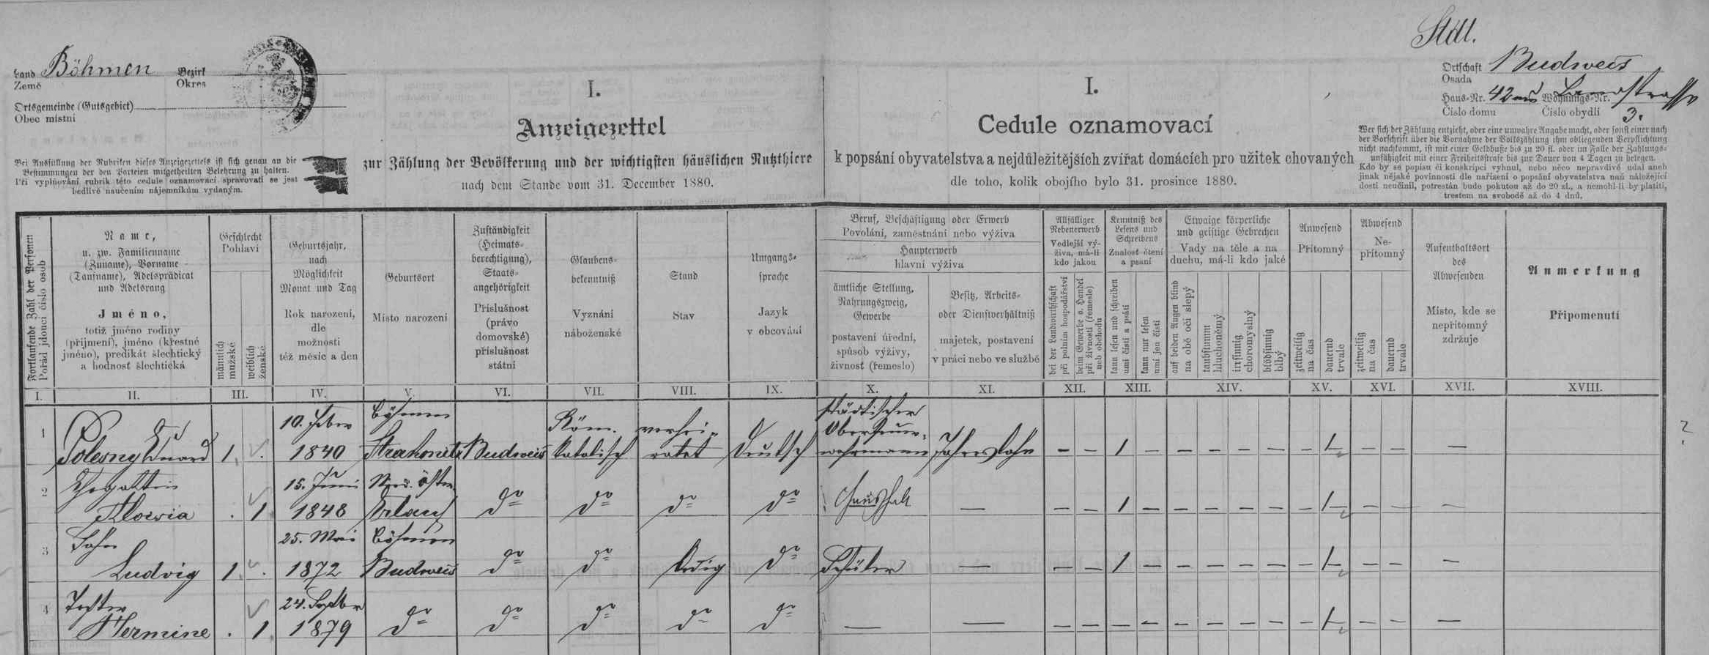 Stdt.
Land Böhmen Bezirk
Země Okres
Ortsgemeinde (Gutsgebiet)
Obec místní
Bei Ausfüllung der Rubriken dieses Anzeigezettels ist sich genau an die
Bestimmungen der den Parteien mitgetheilten Belehrung zu halten.
Při vyplňování rubrik této cedule oznamovací spravovati se jest
bedlivě naučením nájemníkům vydaným.
I.
Anzeigezettel
zur Zählung der Bevölkerung und der wichtigsten häuslichen Nutzthiere
nach dem Stande vom 31. December 1880.
I.
Cedule oznamovací
k popsání obyvatelstva a nejdůležitějších zvířat domácích pro užitek chovaných
dle toho, kolik obojího bylo 31. prosince 1880.
Ortschaft Budweis
Osada
Haus-Nr. 42 Wohnungs-Nr. Landstrasse
Číslo domu Číslo obydlí 3.
Wer sich der Zählung entzieht, oder eine unwahre Angabe macht, oder sonst einer nach
der Vorschrift über die Vornahme der Volkszählung ihm obliegenden Verpflichtung
nicht nachkommt, ist mit einer Geldbuße bis zu 20 fl. oder im Falle der Zahlungs-
unfähigkeit mit einer Freiheitsstrafe bis zur Dauer von 4 Tagen zu belegen.
Kdo by se popisu čili konskripci vyhnul, nebo něco nepravdivě udal aneb
jinak nějaké povinnosti dle nařízení o popsání obyvatelstva naň náležející
dosti neučinil, potrestán bude pokutou až do 20 zl., a nemohl-li by platiti,
trestem na svobodě až do 4 dnů.
Fortlaufende Zahl der Personen
Pořád jdoucí číslo osob
Name,
u. zw. Familienname
(Zuname), Vorname
(Taufname), Adelsprädicat
und Adelsrang
Jméno,
totiž jméno rodiny
(příjmení), jméno (křestné
jméno), predikát šlechtický
a hodnost šlechtická
Geschlecht
Pohlaví
männlich
mužské
weiblich
ženské
Geburtsjahr,
nach
Möglichkeit
Monat und Tag
Rok narození,
dle
možnosti
též měsíc a den
Geburtsort
Místo narození
Zuständigkeit
(Heimats-
berechtigung),
Staats-
angehörigkeit
Příslušnost
(právo
domovské)
příslušnost
státní
Glaubens-
bekenntniß
Vyznání
náboženské
Stand
Stav
Umgangs-
sprache
Jazyk
v obcování
Beruf, Beschäftigung oder Erwerb
Povolání, zaměstnání nebo výživa
Haupterwerb
hlavní výživa
ämtliche Stellung,
Nahrungszweig,
Gewerbe
postavení úřední,
spůsob výživy,
živnost (řemeslo)
Besitz, Arbeits-
oder Dienstverhältniß
majetek, postavení
v práci nebo ve službě
Allfälliger
Nebenerwerb
Vedlejší vý-
živa, má-li
kdo jakou
bei der Landwirthschaft
při polním hospodářství
beim Gewerbe o. Handel
při živnosti (řemesle)
neb obchodu
Kenntniß des
Lesens und
Schreibens
Znalost čtení
a psaní
kann lesen und schreiben
umí čísti a psáti
kann nur lesen
umí jen čísti
Etwaige körperliche
und geistige Gebrechen
Vady na těle a na
duchu, má-li kdo jaké
auf beiden Augen blind
na obě oči slepý
taubstumm
hluchoněmý
irrsinnig
choromyslný
blödsinnig
blbý
Anwesend
Přítomný
zeitweilig
na čas
dauernd
trvale
Abwesend
Ne-
přítomný
zeitweilig
na čas
dauernd
trvale
Aufenthaltsort
des
Abwesenden
Místo, kde se
nepřítomný
zdržuje
Anmerkung
Připomenutí
I. II. III. IV. V. VI. VII. VIII. IX. X. XI. XII. XIII. XIV. XV. XVI. XVII. XVIII.
10. Böhmen Röm. verhei- städtischer
1 Polesny Eduard 1 . 1840 Strakonitz Budweis katolisch ratet Deutsch Jahreslohn – – 1 – – – – – – 1 – – –
Ehegattin 15. Juni
2 Aloisia . 1 1848 do do do do Haushalt — – – 1 – – – – – – 1 – – –
Sohn 25. Mai Böhmen
3 Ludvig 1 . 1872 Budweis do do ledig do Schüler — – – 1 – – – – – – 1 – – –
Tochter 24. Septber
4 Hermine . 1 1879 do do do do do — — – – – – – – – – – 1 – – –
?